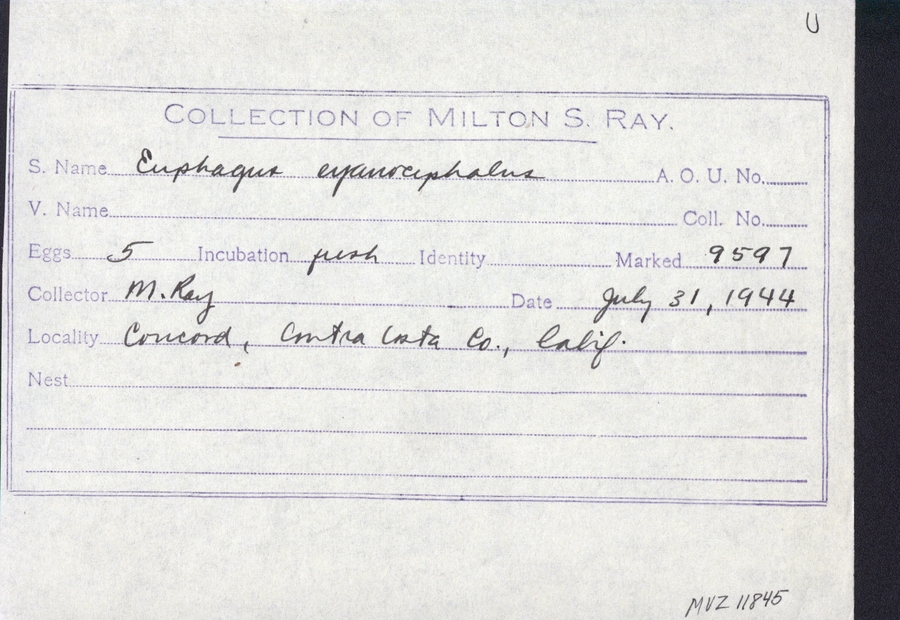 U
COLLECTION OF MILTON S. RAY.
S. Name Euphagus cyanocephalus A. O. U. No.
V. Name Coll. No.
Eggs 5 Incubation fresh Identity Marked 9597
Collector M. Ray Date July 31, 1944
Locality Concord, Contra Costa Co., Calif.
Nest
MVZ 11845